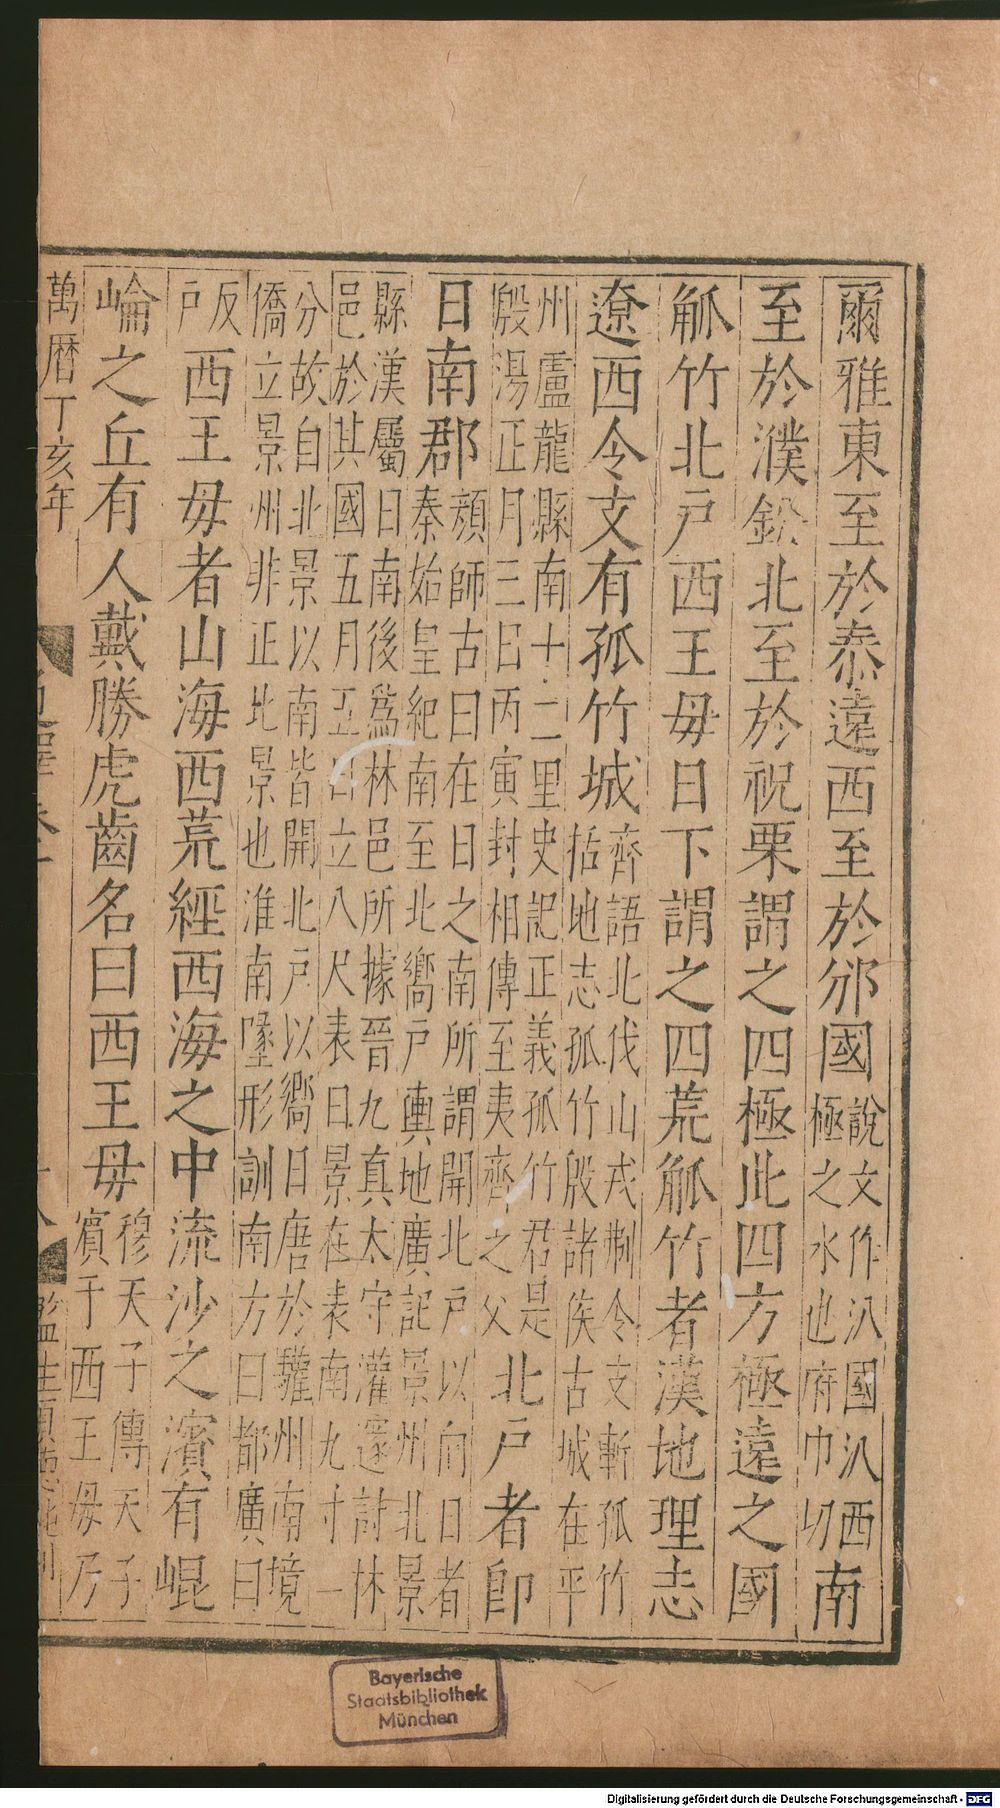 爾雅東至於泰遠西至於邠國說文作汃國汃西極之水也府巾切南
至於濮鈆北至於祝栗謂之四極此四方極遠之國
觚竹北戶西王毋日下謂之四荒觚竹者漢地理志
遼西令支有孤竹城齊語北伐山戎刜令支斬孤竹括地志孤竹殷諸侯古城在平
州盧龍縣南十二里史記正義孤竹君是殷湯正月三日丙寅封相傳至夷齊之父北戶者卽
日南郡顏師古曰在日之南所謂開北戶以向日者秦始皇紀南至北嚮戶輿地廣記景州北景
縣漢屬日南後為林邑所據晉九真太守灌邃討林邑於其國五月立日立八尺表日景在表南九寸一
分故自北景以南皆開北戶以嚮日唐於驩州南境僑立景州非正北景也淮南墬形訓南方曰都廣曰
反戶西王毋者山海西荒經西海之中流沙之濱有崐
崘之丘有人戴勝虎齒名曰西王毋穆天子傳天子賓于西王毋乃
萬曆丁亥年
監生
Bayerische
Staatsbibliothek
München
Digitalisierung gefördert durch die Deutsche Forschungsgemeinschaft - DFG